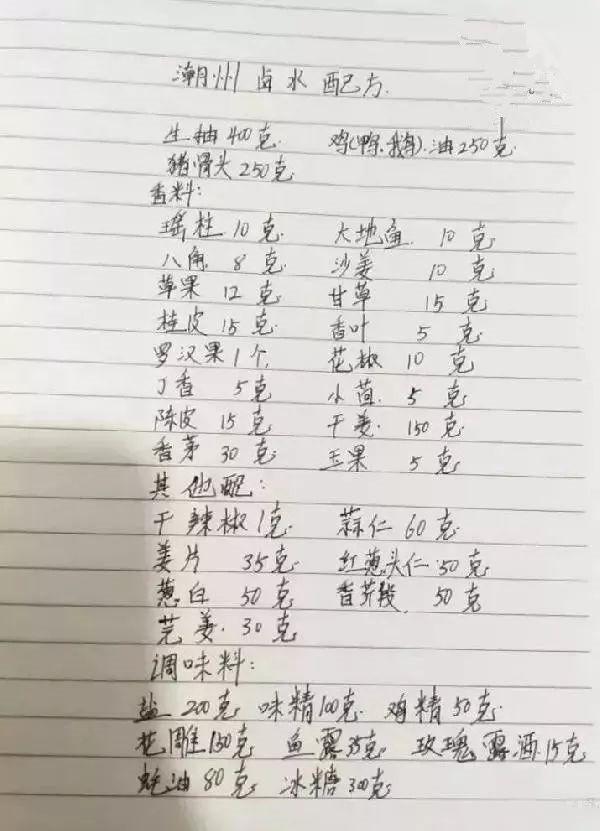 潮州卤水配方
生抽400克 鸡(鸭.鹅).油250克
猪骨头250克
香料:
瑶柱10克 大地鱼10克
八角8克 沙姜10克
草果12克 甘草15克
桂皮15克 香叶5克
罗汉果1个 花椒10克
丁香5克 小茴5克
陈皮15克 干姜150克
香茅30克 玉果5克
其他配:
干辣椒1克 蒜仁60克
姜片35克 红葱头仁50克
葱白50克 香芹段50克
芫荽30克
调味料:
盐200克 味精100克 鸡精50克
花雕150克 鱼露35克 玫瑰露酒15克
蚝油80克 冰糖300克